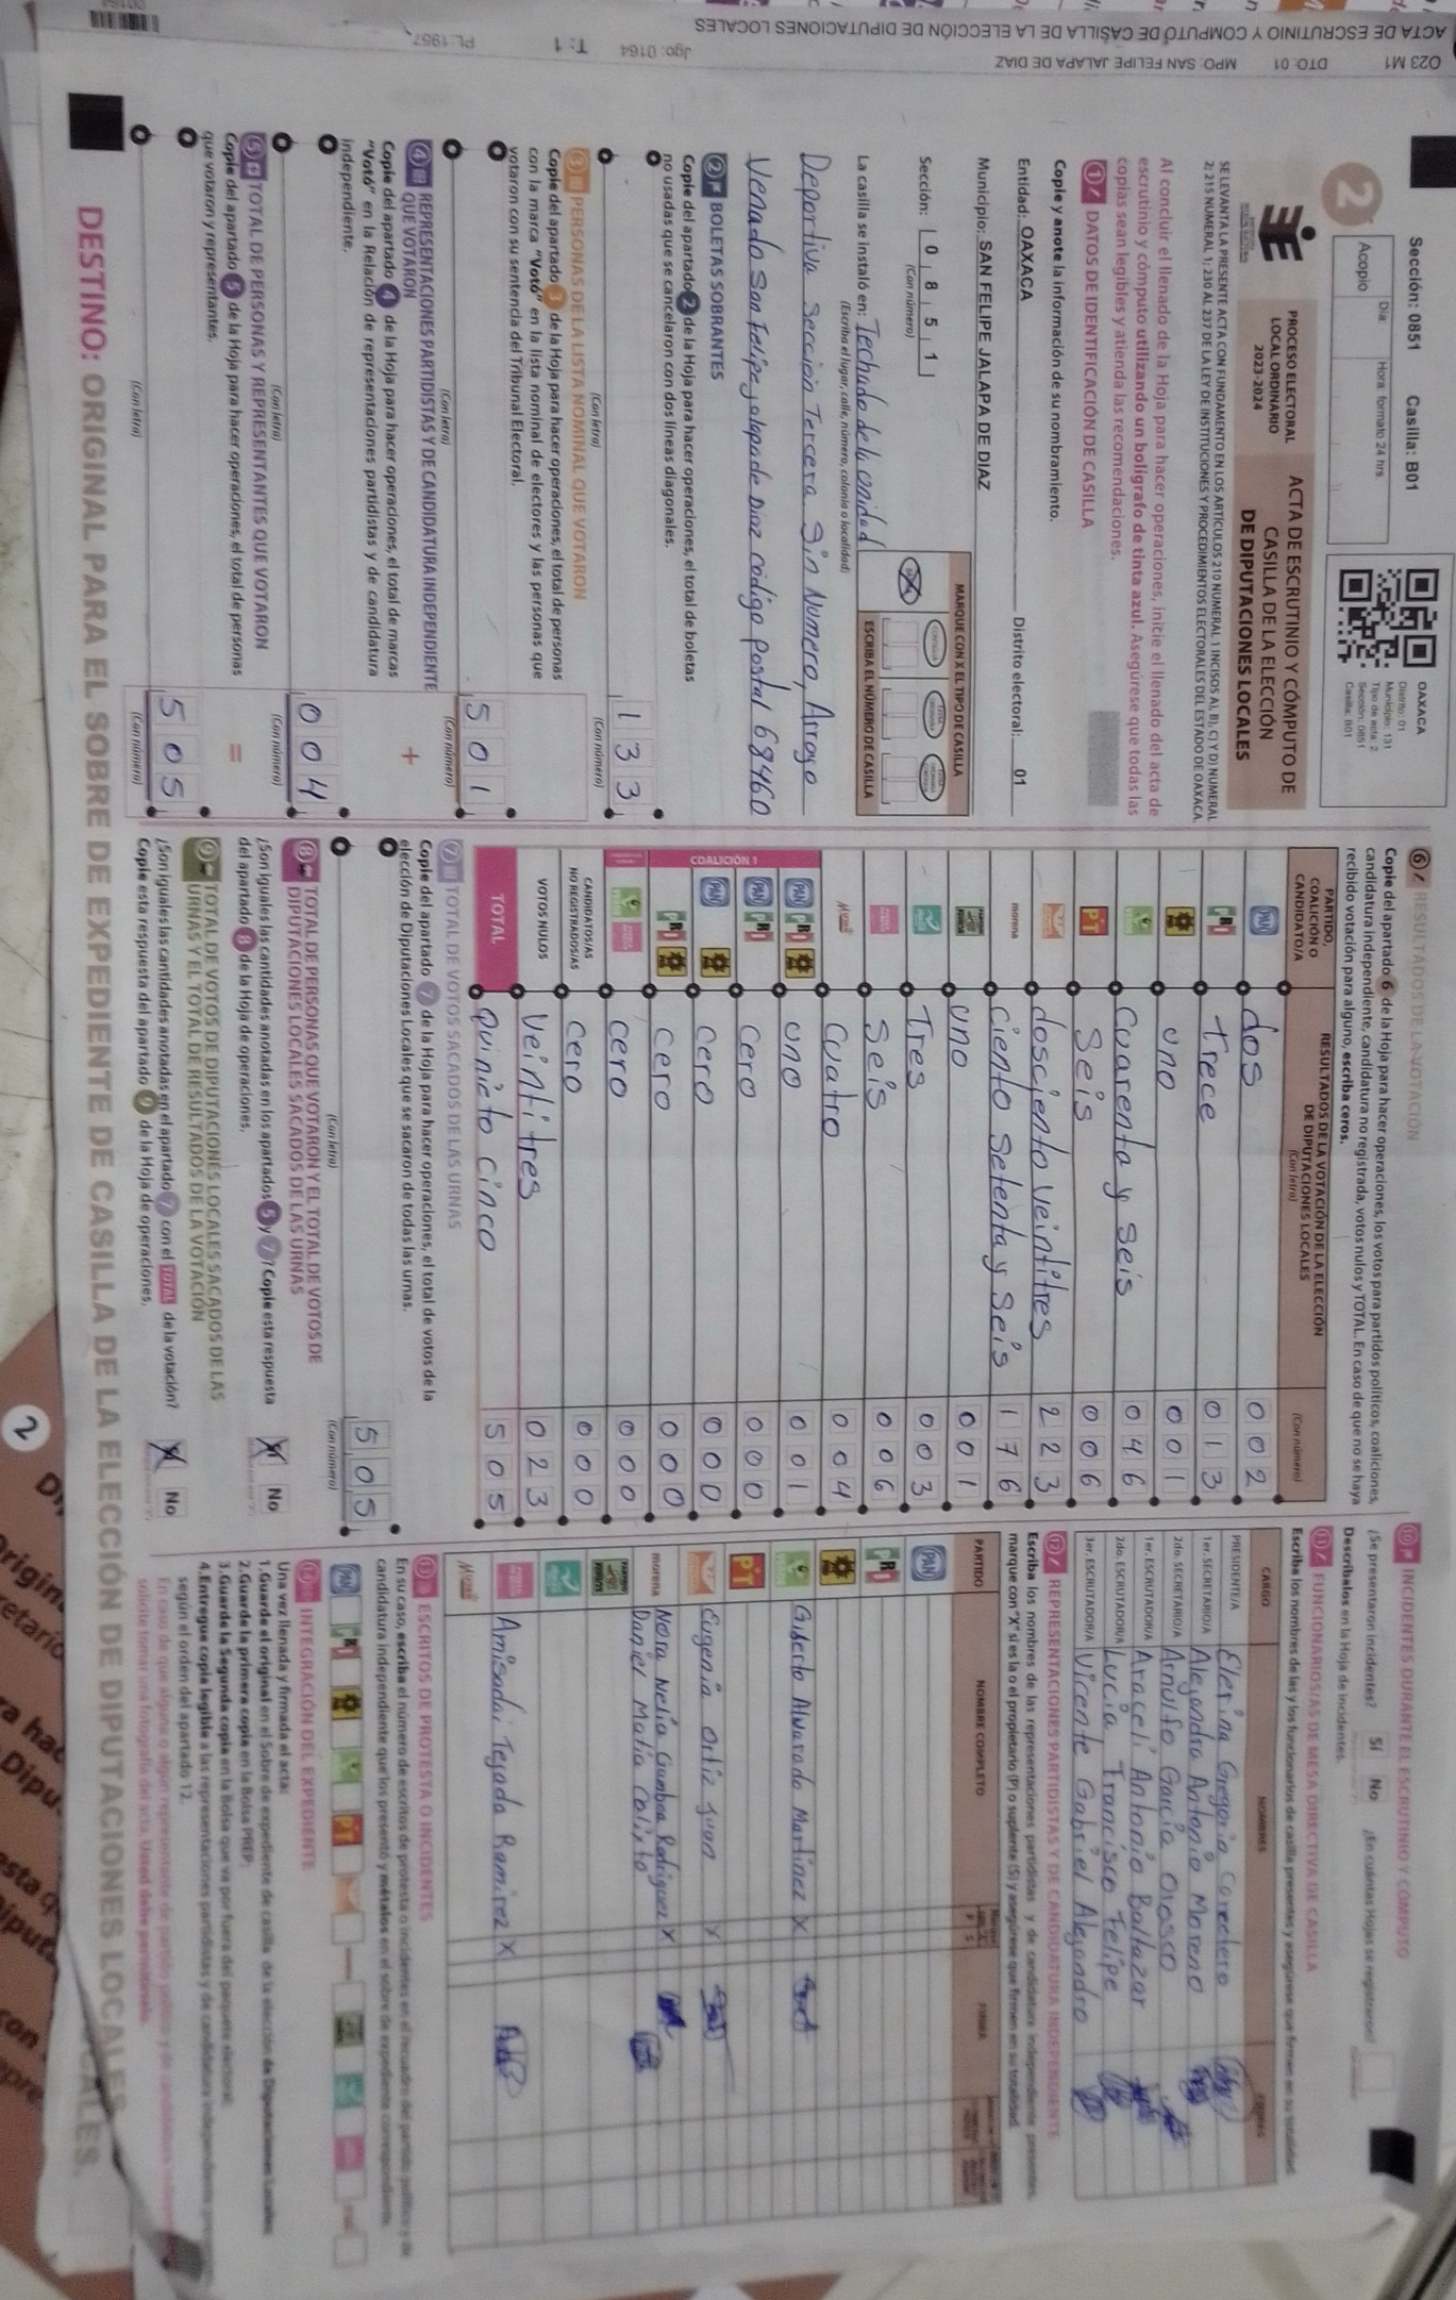 023 M1 DTO: 01 MPO: SAN FELIPE JALAPA DE DIAZ Jgo: 0164 T: 1 PL: 1957
ACTA DE ESCRUTINIO Y CÓMPUTO DE CASILLA DE LA ELECCIÓN DE DIPUTACIONES LOCALES
Sección: 0851 Casilla: B01
2
Día: Hora: formato 24 hrs.
Acopio
OAXACA
Distrito: 01
Municipio: 131
Tipo de acta: 2
Sección: 0851
Casilla: B01
PROCESO ELECTORAL
LOCAL ORDINARIO
2023-2024
ACTA DE ESCRUTINIO Y CÓMPUTO DE
CASILLA DE LA ELECCIÓN
DE DIPUTACIONES LOCALES
SE LEVANTA LA PRESENTE ACTA CON FUNDAMENTO EN LOS ARTÍCULOS 210 NUMERAL 1 INCISOS A), B), C) Y D) NUMERAL
2; 215 NUMERAL 1; 230 AL 237 DE LA LEY DE INSTITUCIONES Y PROCEDIMIENTOS ELECTORALES DEL ESTADO DE OAXACA.
Al concluir el llenado de la Hoja para hacer operaciones, inicie el llenado del acta de
escrutinio y cómputo utilizando un bolígrafo de tinta azul. Asegúrese que todas las
copias sean legibles y atienda las recomendaciones.
1 DATOS DE IDENTIFICACIÓN DE CASILLA
Copie y anote la información de su nombramiento.
Entidad: OAXACA Distrito electoral: 01
Municipio: SAN FELIPE JALAPA DE DIAZ
Sección: 0 8 5 1
(Con número)
MARQUE CON X EL TIPO DE CASILLA
ESCRIBA EL NÚMERO DE CASILLA
La casilla se instaló en: Techado de la unidad
(Escriba el lugar, calle, número, colonia o localidad)
Deportiva Sección Tercera Sin Numero, Arroyo
Venado San Felipe jalapa de Diaz codigo Postal 68460
2 BOLETAS SOBRANTES
Copie del apartado 2 de la Hoja para hacer operaciones, el total de boletas
no usadas que se cancelaron con dos líneas diagonales.
1 3 3
(Con letra) (Con número)
3 PERSONAS DE LA LISTA NOMINAL QUE VOTARON
Copie del apartado 3 de la Hoja para hacer operaciones, el total de personas
con la marca "Votó" en la lista nominal de electores y las personas que
votaron con su sentencia del Tribunal Electoral.
5 0 1
(Con letra) (Con número)
4 REPRESENTACIONES PARTIDISTAS Y DE CANDIDATURA INDEPENDIENTE
QUE VOTARON
+
Copie del apartado 4 de la Hoja para hacer operaciones, el total de marcas
"Votó" en la Relación de representaciones partidistas y de candidatura
independiente.
0 0 4
(Con letra) (Con número)
5 TOTAL DE PERSONAS Y REPRESENTANTES QUE VOTARON
Copie del apartado 5 de la Hoja para hacer operaciones, el total de personas
que votaron y representantes.
=
5 0 5
(Con letra) (Con número)
6 RESULTADOS DE LA VOTACIÓN
Copie del apartado 6 de la Hoja para hacer operaciones, los votos para partidos políticos, coaliciones,
candidatura independiente, candidatura no registrada, votos nulos y TOTAL. En caso de que no se haya
recibido votación para alguno, escriba ceros.
PARTIDO, COALICIÓN O CANDIDATO/A
RESULTADOS DE LA VOTACIÓN DE LA ELECCIÓN DE DIPUTACIONES LOCALES
(Con letra) (Con número)
PAN dos 0 0 2
PRI trece 0 1 3
uno 0 0 1
Cuarenta y seis 0 4 6
PT Seis 0 0 6
dosciento veintitres 2 2 3
morena Ciento Setenta y Seis 1 7 6
uno 0 0 1
Tres 0 0 3
Seis 0 0 6
Cuatro 0 0 4
COALICIÓN 1
PAN PRI uno 0 0 1
PAN PRI Cero 0 0 0
PAN Cero 0 0 0
PRI Cero 0 0 0
Cero 0 0 0
CANDIDATOS/AS NO REGISTRADOS/AS Cero 0 0 0
VOTOS NULOS Veintitres 0 2 3
TOTAL Quinieto Cinco 5 0 5
7 TOTAL DE VOTOS SACADOS DE LAS URNAS
Copie del apartado 7 de la Hoja para hacer operaciones, el total de votos de la
elección de Diputaciones Locales que se sacaron de todas las urnas.
5 0 5
(Con letra) (Con número)
8 TOTAL DE PERSONAS QUE VOTARON Y EL TOTAL DE VOTOS DE
DIPUTACIONES LOCALES SACADOS DE LAS URNAS
¿Son iguales las cantidades anotadas en los apartados 5 y 7? Copie esta respuesta
del apartado 8 de la Hoja de operaciones.
No
9 TOTAL DE VOTOS DE DIPUTACIONES LOCALES SACADOS DE LAS
URNAS Y EL TOTAL DE RESULTADOS DE LA VOTACIÓN
¿Son iguales las cantidades anotadas en el apartado 7 con el TOTAL de la votación?
Copie esta respuesta del apartado 9 de la Hoja de operaciones.
No
10 INCIDENTES DURANTE EL ESCRUTINIO Y CÓMPUTO
¿Se presentaron incidentes? Sí No ¿En cuántas Hojas se registraron?
Descríbalos en la Hoja de incidentes.
11 FUNCIONARIOS/AS DE MESA DIRECTIVA DE CASILLA
Escriba los nombres de las y los funcionarios de casilla presentes y asegúrese que firmen en su totalidad.
CARGO NOMBRES
PRESIDENTE/A
1er. SECRETARIO/A Alejandra Antonio Moreno
2do. SECRETARIO/A Arnulfo Garcia Orosco
1er. ESCRUTADOR/A Araceli Antonio Baltazar
2do. ESCRUTADOR/A Lucia Francisco Felipe
3er. ESCRUTADOR/A Vicente Gabriel Alejandro
12 REPRESENTACIONES PARTIDISTAS Y DE CANDIDATURA INDEPENDIENTE
Escriba los nombres de las representaciones partidistas y de candidatura independiente presentes,
marque con "X" si es la o el propietario (P) o suplente (S) y asegúrese que firmen en su totalidad.
PARTIDO NOMBRE COMPLETO FIRMA
PAN
PRI
Gilberto Alvarado Martinez X
PT
Eugenia Ortiz Juan X
morena Nora Nelia Gamboa Rodriguez X
Daniel Matia Calixto
Amisadai Tejada Ramirez X
13 ESCRITOS DE PROTESTA O INCIDENTES
En su caso, escriba el número de escritos de protesta o incidentes en el recuadro del partido político y de
candidatura independiente que los presentó y métalos en el sobre de expediente correspondiente.
14 INTEGRACIÓN DEL EXPEDIENTE
Una vez llenada y firmada el acta:
1. Guarde el original en el Sobre de expediente de casilla de la elección de Diputaciones Locales.
2. Guarde la primera copia en la Bolsa PREP.
3. Guarde la Segunda copia en la Bolsa que va por fuera del paquete electoral.
4. Entregue copia legible a las representaciones partidistas y de candidatura independiente
según el orden del apartado 12.
DESTINO: ORIGINAL PARA EL SOBRE DE EXPEDIENTE DE CASILLA DE LA ELECCIÓN DE DIPUTACIONES LOCALES
2